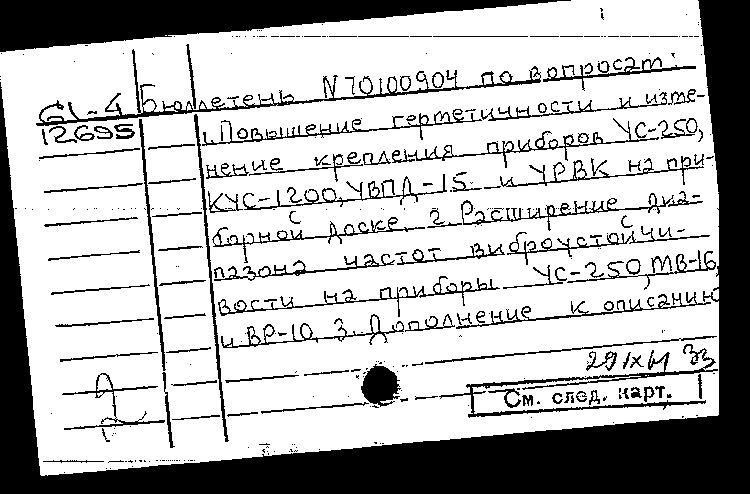 Бюллетень N70100904 по вопросам:
12695
1. Повышение герметичности и изме-
нение крепления приборов УС-250,
КУС-1200, УВПД-15 и УРВК на при-
борной доске. 2. Расширение диа-
пазона частот виброустойчи-
вости на приборы УС-250, МВ-16,
и ВР-10. 3. Дополнение к описанию
См. след. карт.